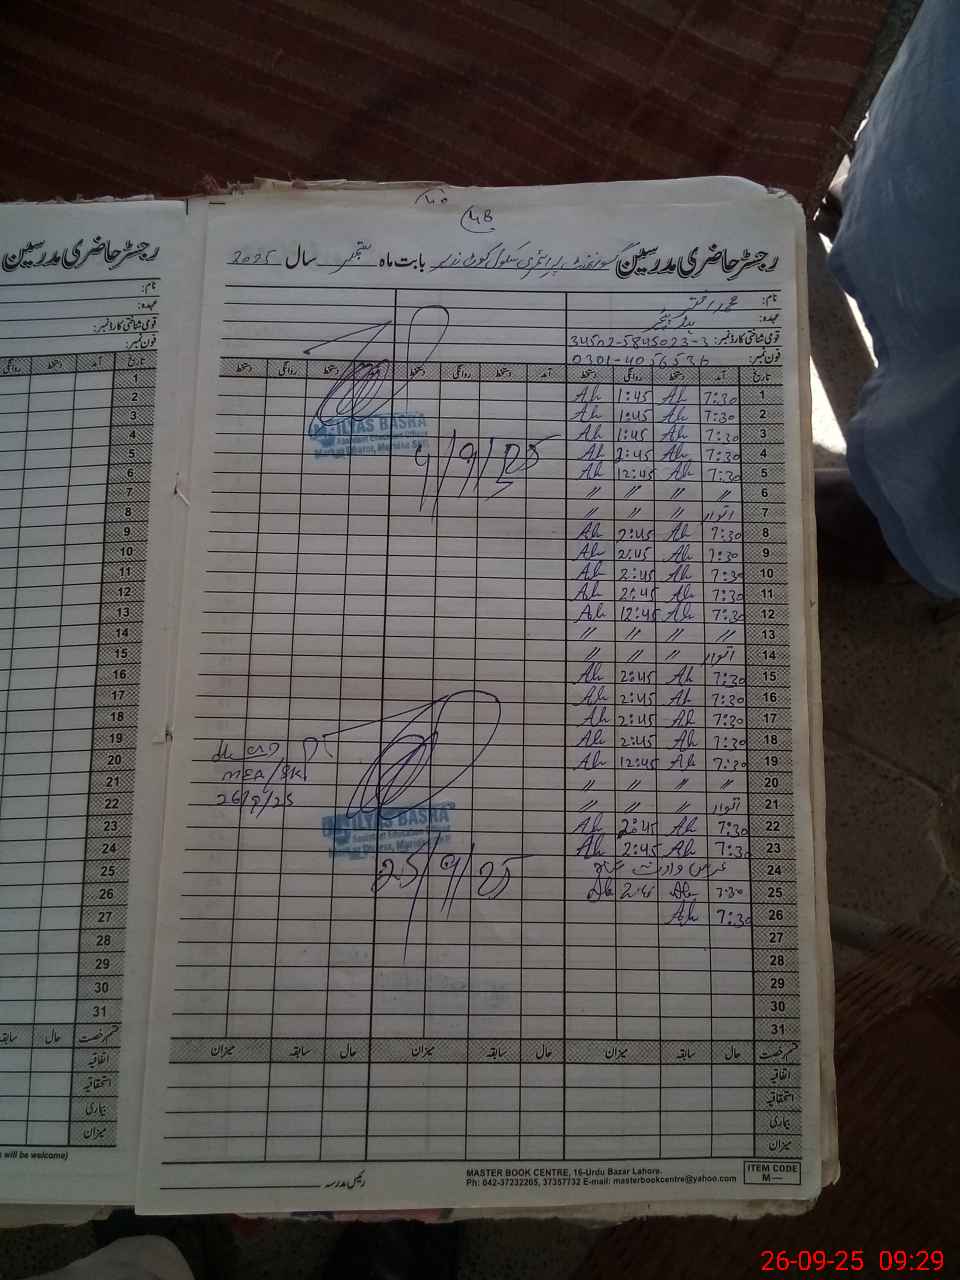 MB
رجسٹر حاضری مدرسین گورنمنٹ پرائمری سکول کوٹ نذیر بابت ماہ ستمبر سال 2025
نام: محمد اختر
عہدہ: ہیڈ ٹیچر
قومی شناختی کارڈ نمبر: 34502-5845023-3
فون نمبر: 0301-4056536
تاریخ آمد دستخط روانگی دستخط آمد دستخط روانگی دستخط دستخط روانگی دستخط
1 7:30 Ah 1:45 Ah
2 7:30 Ah 1:45 Ah
3 7:30 Ah 1:45 Ah
4 7:30 Ah 2:45 Ah
5 7:30 Ah 12:45 Ah
6 〃 〃 〃 〃
7 اتوار 〃 〃 〃
8 7:30 Ah 2:45 Ah
9 7:30 Ah 2:45 Ah
10 7:30 Ah 2:45 Ah
11 7:30 Ah 2:45 Ah
12 7:30 Ah 12:45 Ah
13 〃 〃 〃 〃
14 اتوار 〃 〃 〃
15 7:30 Ah 2:45 Ah
16 7:30 Ah 2:45 Ah
17 7:30 Ah 2:45 Ah
18 7:30 Ah 2:45 Ah
19 7:30 Ah 12:45 Ah
20 〃 〃 〃 〃
21 اتوار 〃 〃 〃
22 7:30 Ah 2:45 Ah
23 7:30 Ah 2:45 Ah
24 عرس وارث شاہ
25 7:30 Ah Ah
26 7:30 Ah
27
28
29
30
31
قسم رخصت حال سابقہ میزان حال سابقہ میزان حال سابقہ میزان
اتفاقیہ
استحقاقیہ
بیماری
میزان
رئیس مدرسہ
MASTER BOOK CENTRE, 16-Urdu Bazar Lahore.
Ph: 042-37232265, 37357732 E-mail: masterbookcentre@yahoo.com
ITEM CODE
M—
ILYAS BASRA
Assistant Education Officer
9/9/25
MEA/SKP
26/9/25
ILYAS BASRA
Assistant Education
25/9/25
رجسٹر حاضری مدرسین
نام:
عہدہ:
قومی شناختی کارڈ نمبر:
فون نمبر:
تاریخ آمد دستخط روانگی
1
2
3
4
5
6
7
8
9
10
11
12
13
14
15
16
17
18
19
20
21
22
23
24
25
26
27
28
29
30
31
قسم رخصت حال سابقہ
اتفاقیہ
استحقاقیہ
بیماری
میزان
will be welcome)
26-09-25 09:29